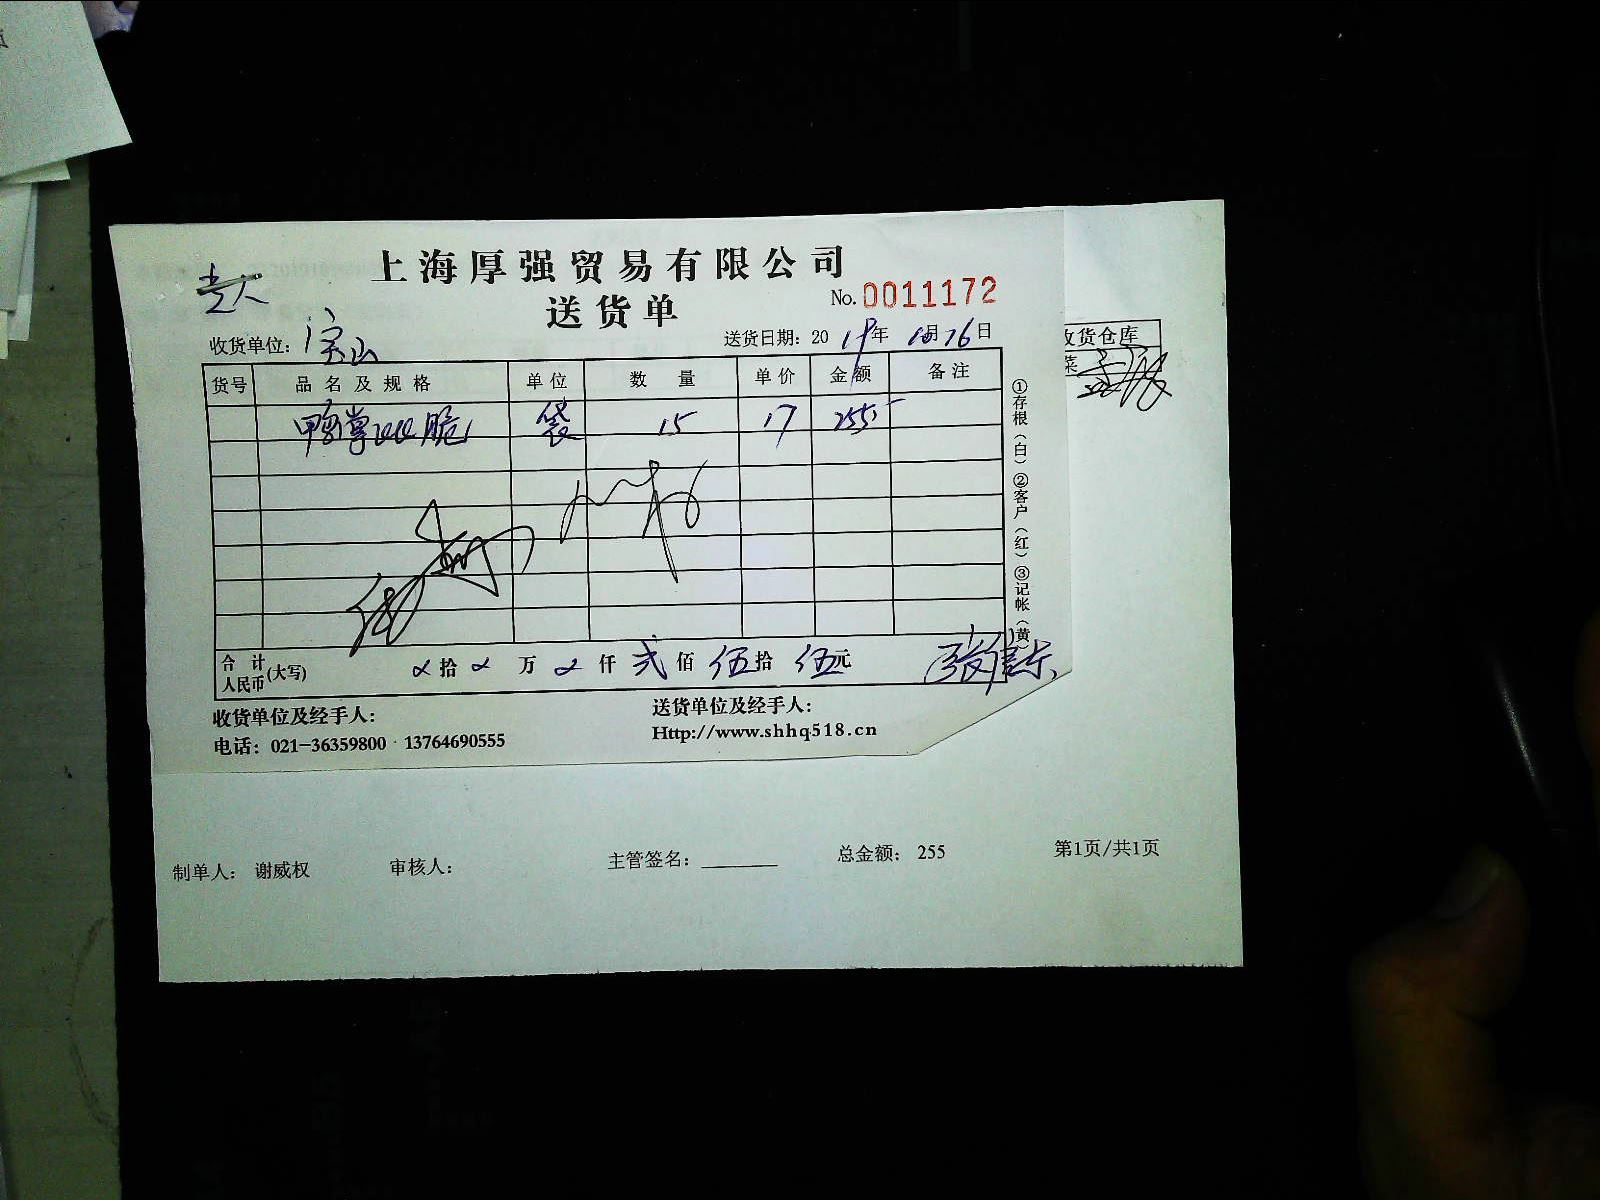 上海厚强贸易有限公司
送货单
No. 0011172
收货单位： 宝山
送货日期：2019年10月26日
收货仓库
货号 品名及规格 单位 数量 单价 金额 备注
菜
鸭掌脆 袋 15 17 255
①存根（白）②客户（红）③记帐（黄）
合计人民币(大写) 拾 万 仟 弍佰 伍拾 伍元
收货单位及经手人：
送货单位及经手人：
电话：021-36359800 · 13764690555
Http://www.shhq518.cn
制单人： 谢威权 审核人： 主管签名：________ 总金额： 255 第1页/共1页